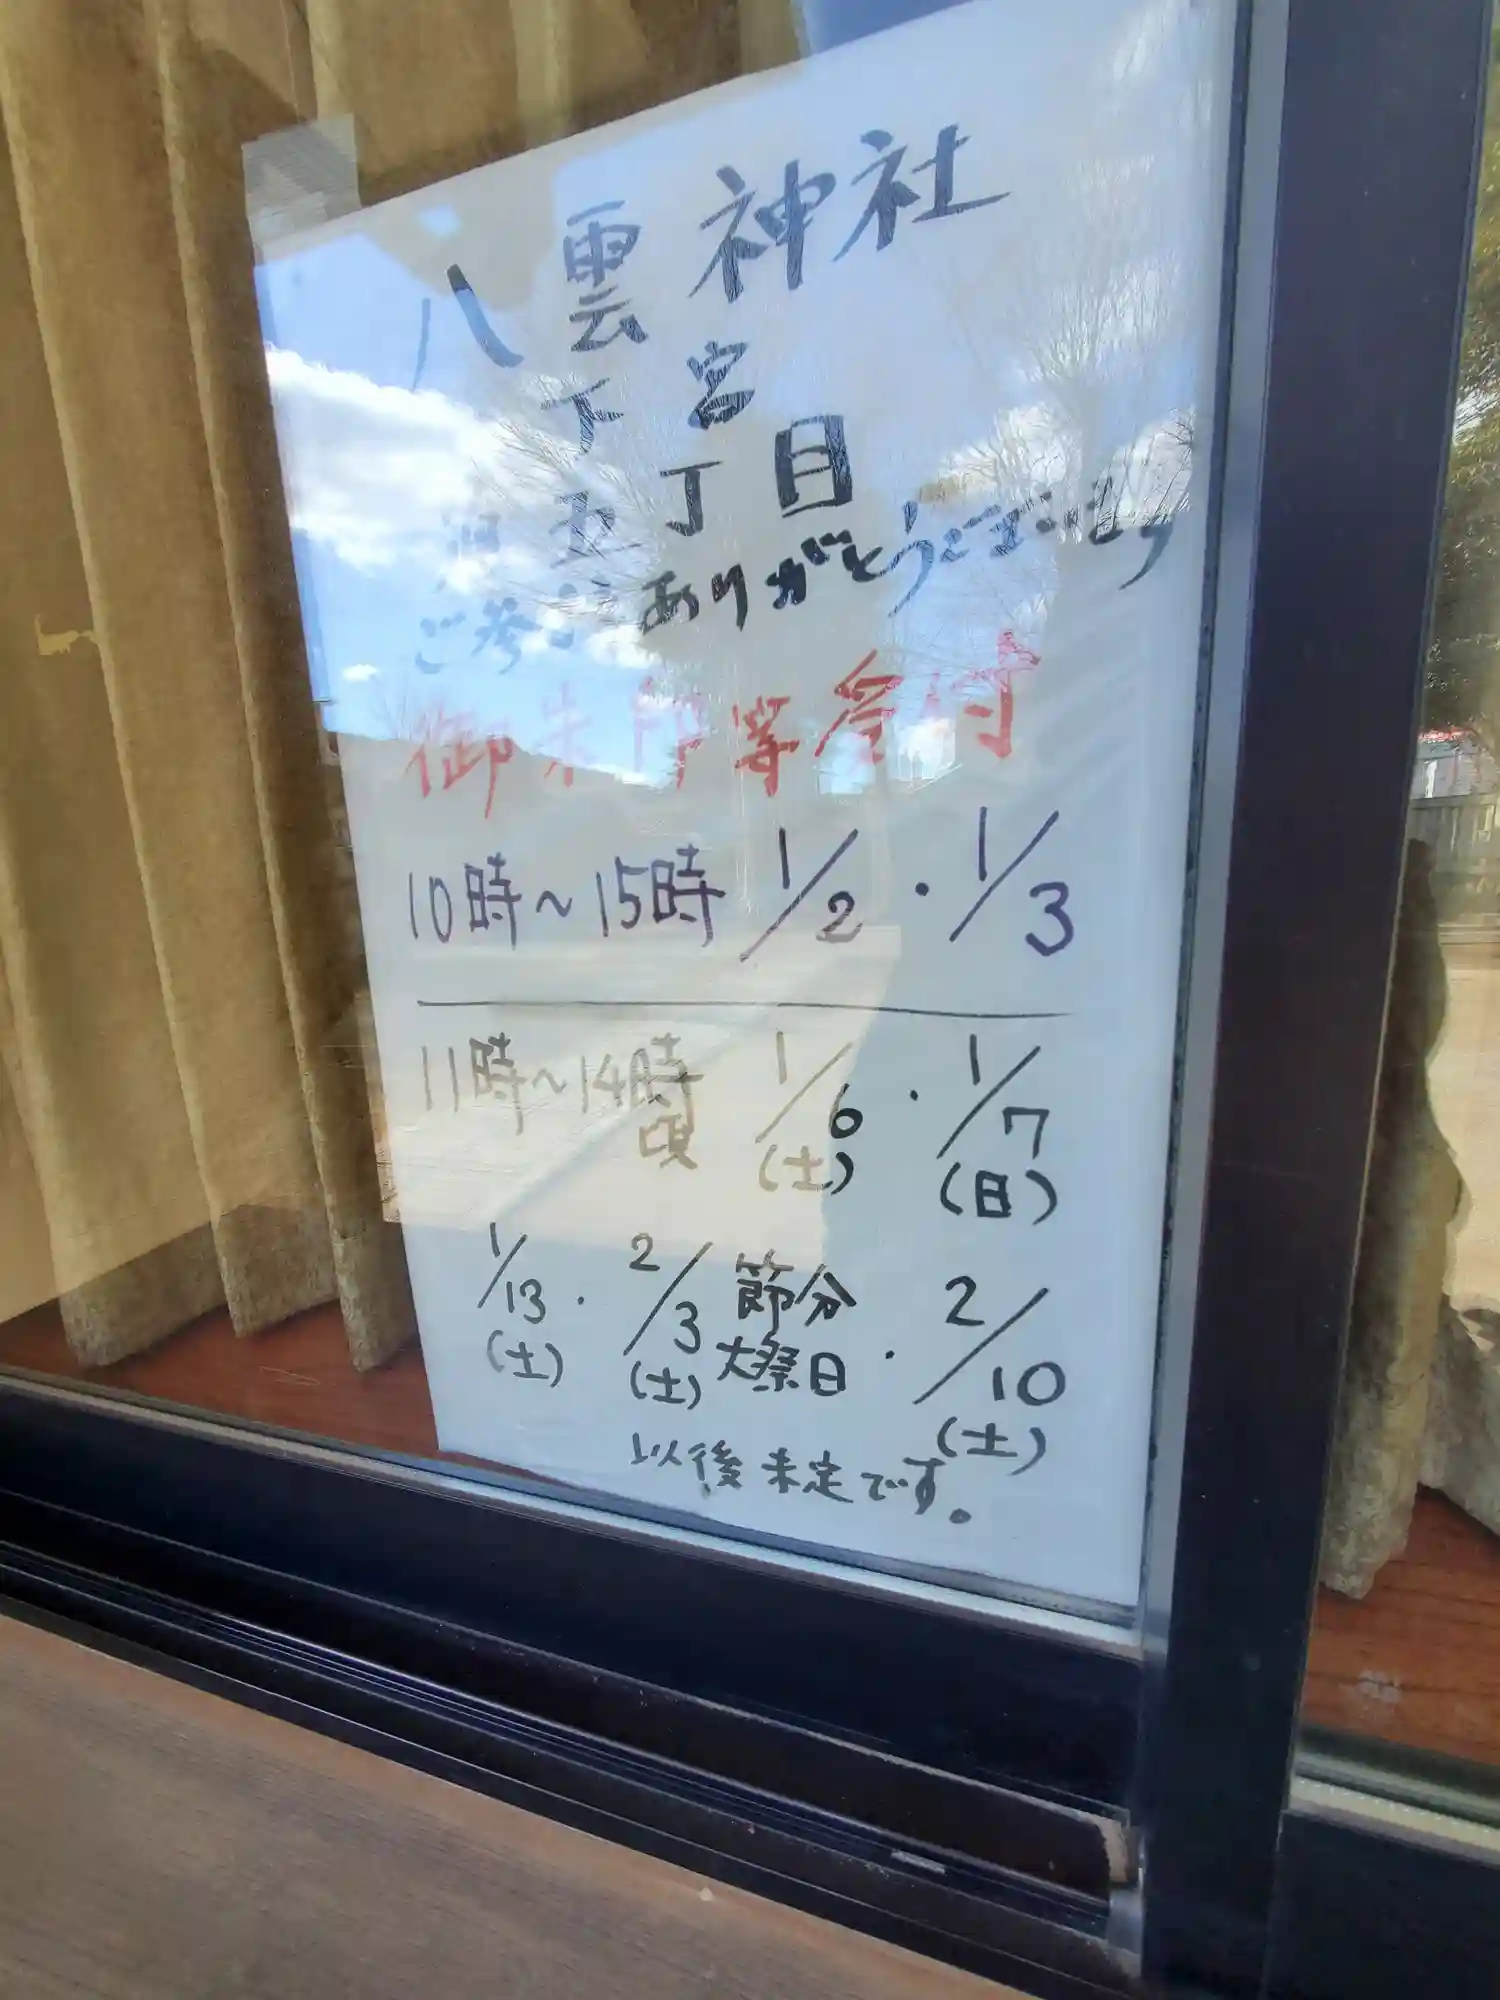 八雲神社
下宮
五丁目
ご参 ありがとうございます
御朱印等受付
10時～15時 1/2・1/3
11時～14時頃 1/6(土)・1/7(日)
1/13(土)・2/3(土)節分大祭日・2/10(土)
以後未定です。